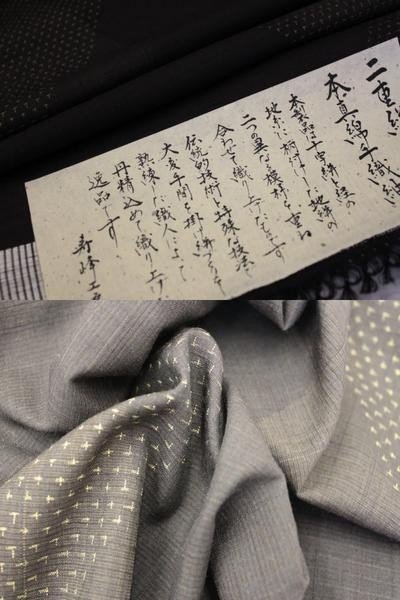 二重絣
本真綿手織紬
本製品は十字絣と経の
地糸に柄付けした地絣の
二つの異なる模様を重ね
合わせて織り上げたものです
伝統的技術と特殊な技法で
大変手間を掛け絣づくりを
熟練した職人によって
丹精込めて織り上げ
逸品です
寿峰工